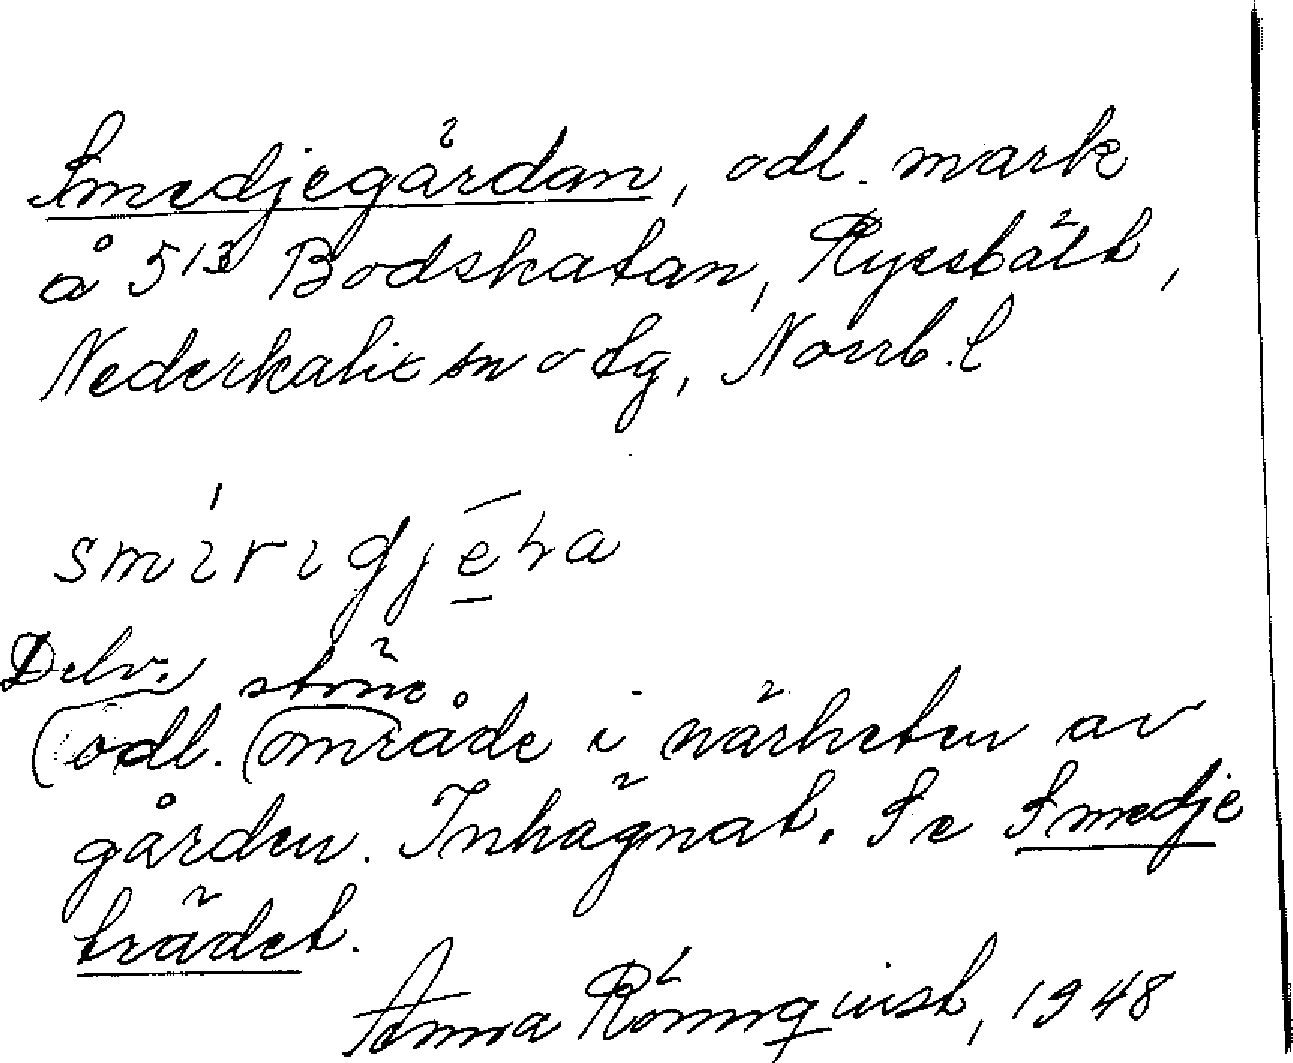 Smedjegårdan, odl. mark
å 5¹³ Bodskatan, Ryssbält,
Nederkalix sn o tg, Norrb. l
smirigjēra
Delv. större
odl. område i närheten av
gården. Inhägnat. Se Smedje
trädet.
Anna Rönnqvist, 1948